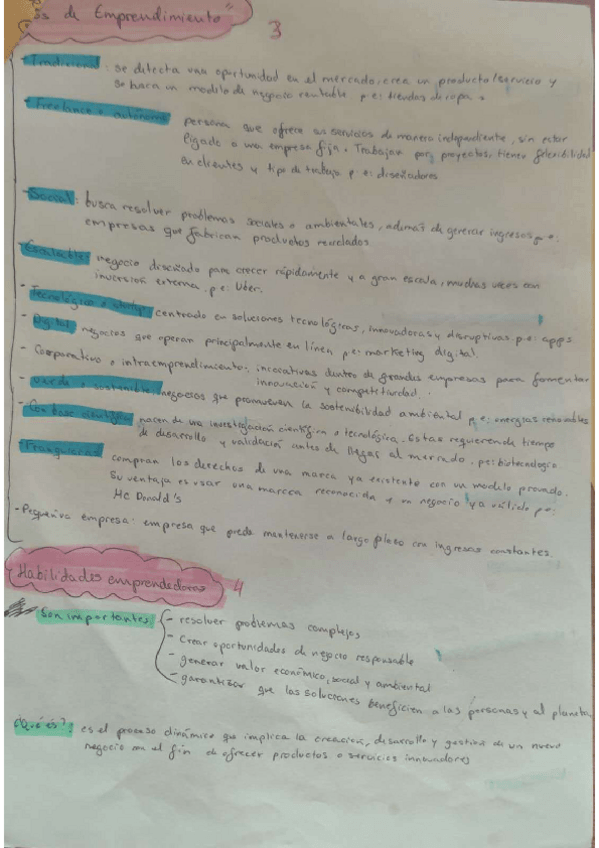 os de Emprendimiento"
3
- Tradicional: se detecta una oportunidad en el mercado, crea un producto/servicio y
se hará un modelo de negocio rentable p.e: tiendas de ropa.
- Freelance o autónomo
persona que ofrece sus servicios de manera independiente, sin estar
ligado a una empresa fija. Trabajan por proyectos, tienen flexibilidad
en clientes y tipo de trabajo p.e: diseñadores
- Social: busca resolver problemas sociales o ambientales, además de generar ingresos p.e:
empresas que fabrican productos reciclados
- Escalable: negocio diseñado para crecer rápidamente y a gran escala, muchas veces con
inversión externa. p.e: Uber.
- Tecnológico o startup centrado en soluciones tecnológicas, innovadoras y disruptivas. p.e: apps
- Digital negocios que operan principalmente en línea p.e: marketing digital.
- Corporativo o intraemprendimiento: iniciativas dentro de grandes empresas para fomentar
innovación y competitividad.
- Verde o sostenible negocios que promueven la sostenibilidad ambiental p.e: energías renovables
- Con base científica nacen de una investigación científica o tecnológica. Estas requieren de tiempo
de desarrollo y validación antes de llegar al mercado. p.e: biotecnología
- Franquicias compran los derechos de una marca ya existente con un modelo probado.
Su ventaja es usar una marca reconocida y un negocio ya válido p.e:
Mc Donald's
- Pequeña empresa: empresa que puede mantenerse a largo plazo con ingresos constantes.
Habilidades emprendedoras 4
Son importantes
- resolver problemas complejos
- Crear oportunidades de negocio responsable
- generar valor económico, social y ambiental
- garantizar que las soluciones beneficien a las personas y al planeta
¿Qué es?: es el proceso dinámico que implica la creación, desarrollo y gestión de un nuevo
negocio con el fin de ofrecer productos o servicios innovadores